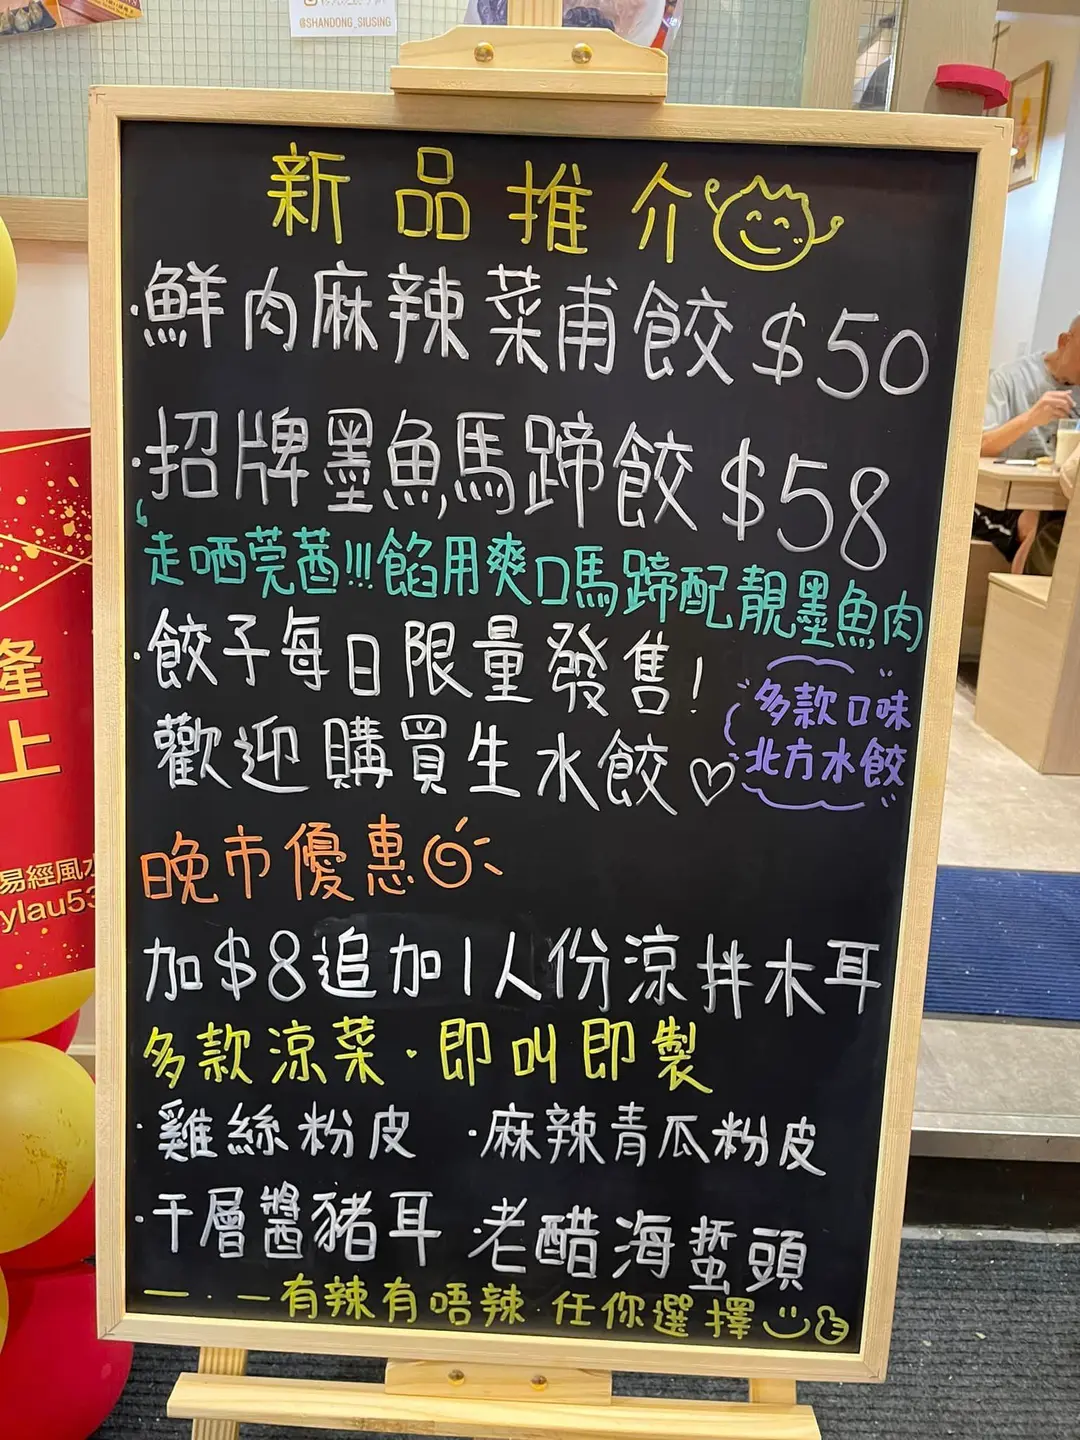 @SHANDONG_SIUSING
新品推介
·鮮肉麻辣菜甫餃$50
·招牌墨魚馬蹄餃$58
走哂莞茜!!!餡用爽口馬蹄配靚墨魚肉
·餃子每日限量發售!
歡迎購買生水餃♡
多款口味
北方水餃
晚市優惠
加$8追加1人份涼拌木耳
多款涼菜·即叫即製
·雞絲粉皮 ·麻辣青瓜粉皮
·千層醬豬耳 ·老醋海蜇頭
一·一有辣有唔辣·任你選擇
隆
上
易經風水
ylau53